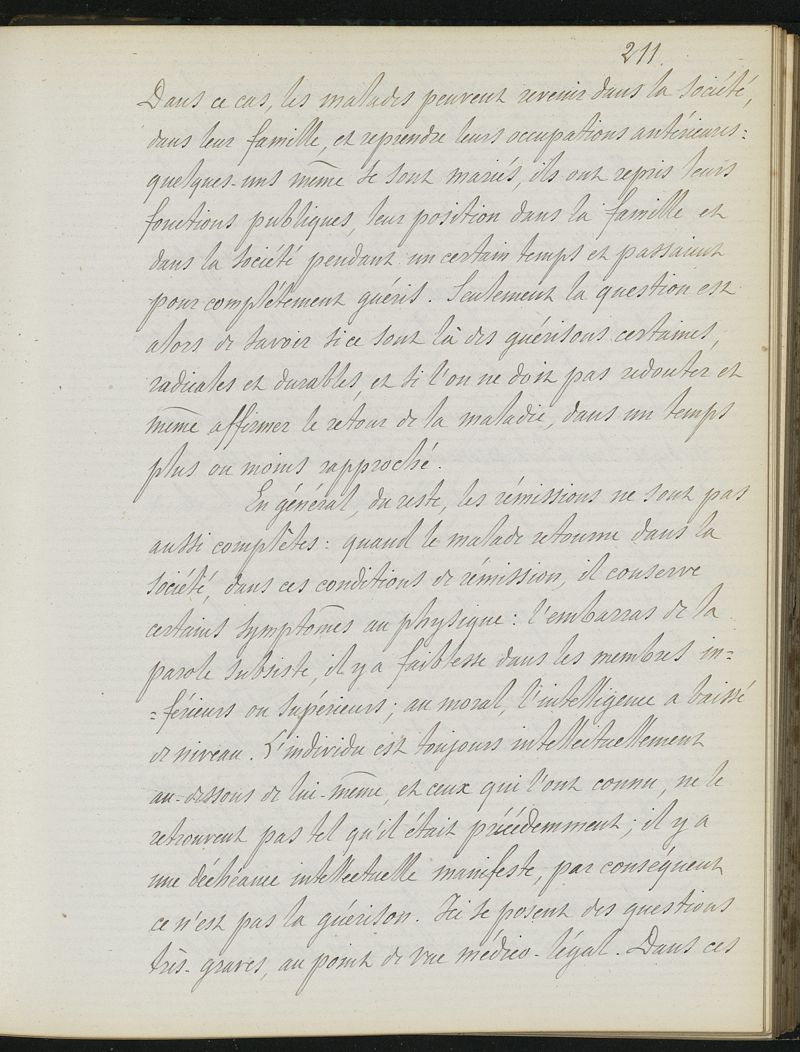 211.
Dans ce cas, les malades peuvent revenir dans la société,
dans leur famille, et reprendre leurs occupations antérieures:
quelques-uns même se sont mariés, ils ont repris leurs
fonctions publiques, leur position dans la famille et
dans la société pendant un certain temps et passaient
pour complètement guéris. Seulement la question est
alors de savoir si ce sont là des guérisons certaines,
radicales et durables, et si l'on ne doit pas redouter et
même affirmer le retour de la maladie, dans un temps
plus ou moins rapproché.
En général, du reste, les rémissions ne sont pas
aussi complètes: quand le malade retourne dans la
société, dans ces conditions de rémission, il conserve
certains symptômes au physique: l'embarras de la
parole subsiste, il y a faiblesse dans les membres in=
=férieurs ou supérieurs; au moral, l'intelligence a baissé
de niveau. L'individu est toujours intellectuellement
au-dessous de lui-même, et ceux qui l'ont connu, ne le
retrouvent pas tel qu'il était précédemment; il y a
une déchéance intellectuelle manifeste, par conséquent
ce n'est pas la guérison. Ici se posent des questions
très-graves, au point de vue médico-légal. Dans ces